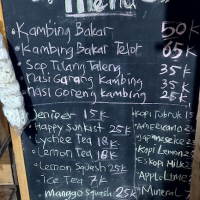 menu
Kambing Bakar 50K
Kambing Bakar Telor 65K
Sop Tulang Taleng 35K
nasi Garang kambing 35K
nasi Goreng kambing 25K
Jeniper 15K
Happy Sunkist 25K
Lychee Tea 18K
Lemon Tea 18K
Lemon Squash 25K
ice Tea 7K
Manggo Squash 25K
Kopi Tubruk
Americano
Japanese ice
Kopi Lemon
Es kopi Milk
Apple Lime
Mineral